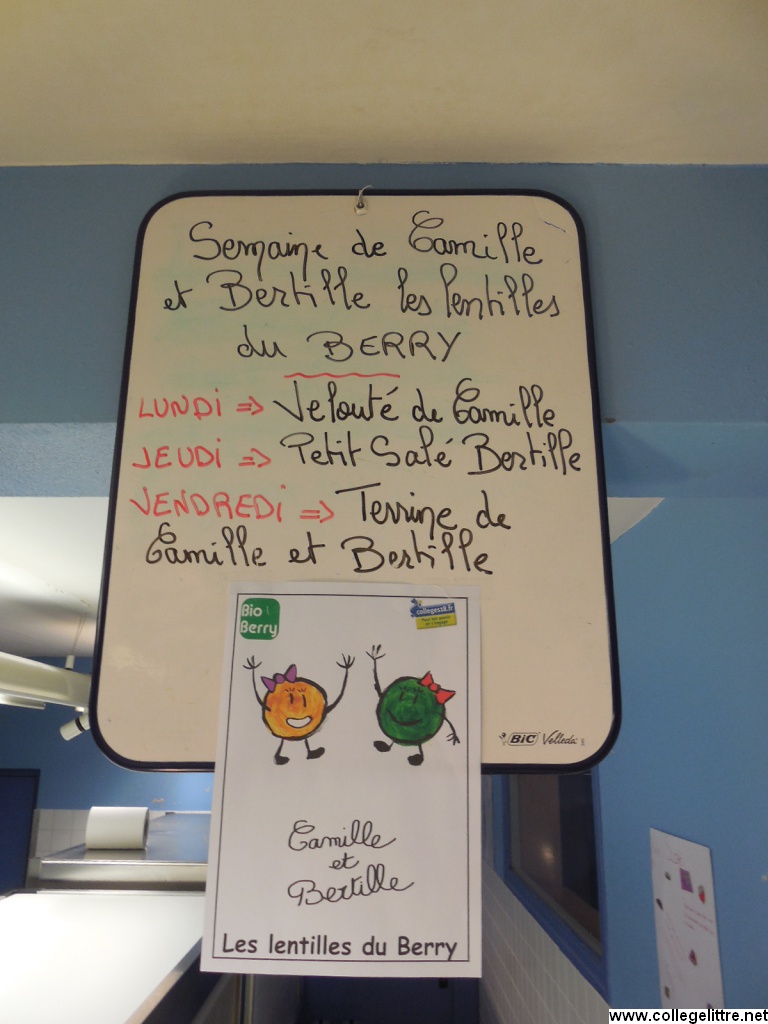 Semaine de Camille
et Bertille les lentilles
du BERRY
LUNDI => Velouté de Camille
JEUDI => Petit Salé Bertille
VENDREDI => Terrine de
Camille et Bertille
Bio
Berry
colleges28.fr
BIC Velleda
Camille
et
Bertille
Les lentilles du Berry
www.collegelittre.net